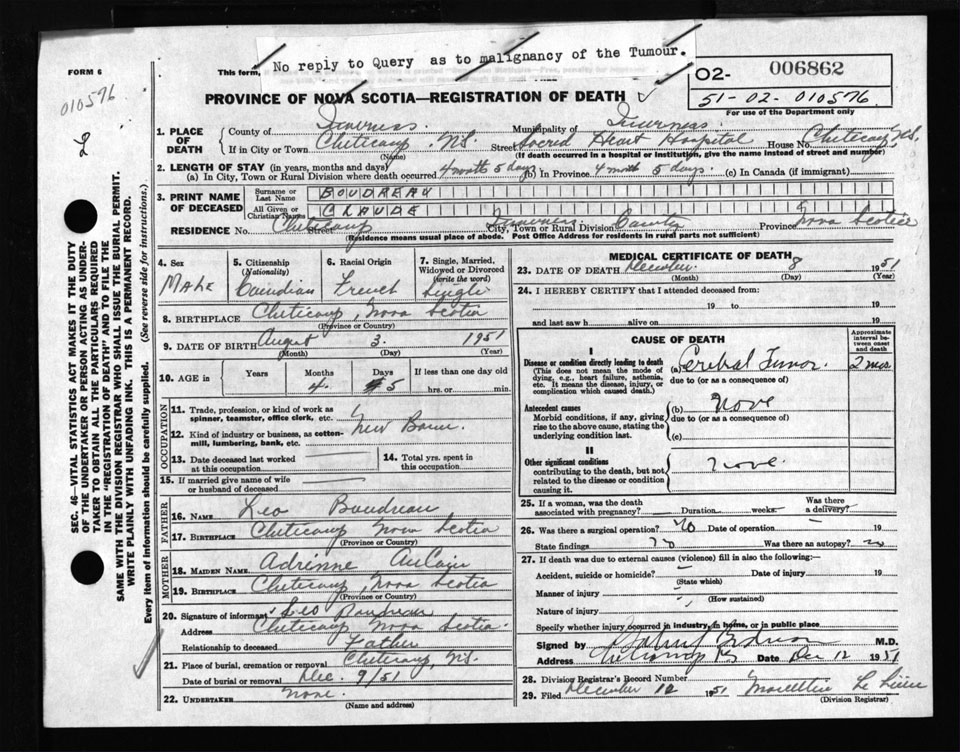 No reply to Query as to malignancy of the Tumour.
FORM 6
This form,
010576
O2- 006862
51-02-010576
For use of the Department only
PROVINCE OF NOVA SCOTIA—REGISTRATION OF DEATH
1. PLACE OF DEATH
County of Inverness Municipality of Inverness
If in City or Town Cheticamp N.S. Street Sacred Heart Hospital House No. Cheticamp N.S.
(Name) (If death occurred in a hospital or institution, give the name instead of street and number)
2. LENGTH OF STAY (in years, months and days)
(a) In City, Town or Rural Division where death occurred 4 month 5 days (b) In Province 4 month 5 days. (c) In Canada (if immigrant)
3. PRINT NAME OF DECEASED
Surname or Last Name BOUDREAU
All Given or Christian Names CLAUDE
RESIDENCE No. Cheticamp Street Inverness City, Town or Rural Division County Province Nova Scotia
(Residence means usual place of abode. Post Office Address for residents in rural parts not sufficient)
4. Sex Male
5. Citizenship (Nationality) Canadian
6. Racial Origin French
7. Single, Married, Widowed or Divorced (write the word) Single
8. BIRTHPLACE Cheticamp, Nova Scotia
(Province or Country)
9. DATE OF BIRTH August 3. 1951
(Month) (Day) (Year)
10. AGE in Years Months 4 Days 5 If less than one day old hrs. or min.
OCCUPATION
11. Trade, profession, or kind of work as spinner, teamster, office clerk, etc. New Born.
12. Kind of industry or business, as cotton-mill, lumbering, bank, etc.
13. Date deceased last worked at this occupation
14. Total yrs. spent in this occupation
15. If married give name of wife or husband of deceased
FATHER
16. NAME Leo Boudreau
17. BIRTHPLACE Cheticamp Nova Scotia
(Province or Country)
MOTHER
18. MAIDEN NAME Adrinne AuCoin
19. BIRTHPLACE Cheticamp, Nova Scotia
(Province or Country)
20. Signature of informant Leo Boudreau
Address Cheticamp Nova Scotia.
Relationship to deceased Father
21. Place of burial, cremation or removal Cheticamp, N.S.
Date of burial or removal Dec. 9/51
22. UNDERTAKER None.
(Name and Address)
MEDICAL CERTIFICATE OF DEATH
23. DATE OF DEATH December 8 1951
(Month) (Day) (Year)
24. I HEREBY CERTIFY that I attended deceased from:
19 to 19
and last saw h alive on 19
CAUSE OF DEATH
Approximate interval between onset and death
I
Disease or condition directly leading to death (a) Cerebral Tumor. 2 mos.
(This does not mean the mode of dying, e.g., heart failure, asthenia, etc. It means the disease, injury, or complication which caused death.)
due to (or as a consequence of)
Antecedent causes (b) None
Morbid conditions, if any, giving rise to the above cause, stating the underlying condition last.
due to (or as a consequence of)
(c)
II
Other significant conditions None.
contributing to the death, but not related to the disease or condition causing it.
25. If a woman, was the death associated with pregnancy? Duration weeks Was there a delivery?
26. Was there a surgical operation? No Date of operation 19
State findings no Was there an autopsy? no
27. If death was due to external causes (violence) fill in also the following:—
Accident, suicide or homicide? Date of injury 19
(State which)
Manner of injury
(How sustained)
Nature of injury
Specify whether injury occurred in industry, in home, or in public place
Signed by M.D.
Address Date Dec 12 1951
28. Division Registrar's Record Number
29. Filed December 12 1951
(Division Registrar)
SEC. 46—VITAL STATISTICS ACT MAKES IT THE DUTY
OF THE UNDERTAKER OR PERSON ACTING AS UNDER-
TAKER TO OBTAIN ALL THE PARTICULARS REQUIRED
IN THE "REGISTRATION OF DEATH" AND TO FILE THE
SAME WITH THE DIVISION REGISTRAR WHO SHALL ISSUE THE BURIAL PERMIT.
WRITE PLAINLY WITH UNFADING INK. THIS IS A PERMANENT RECORD.
Every item of information should be carefully supplied. (See reverse side for instructions.)